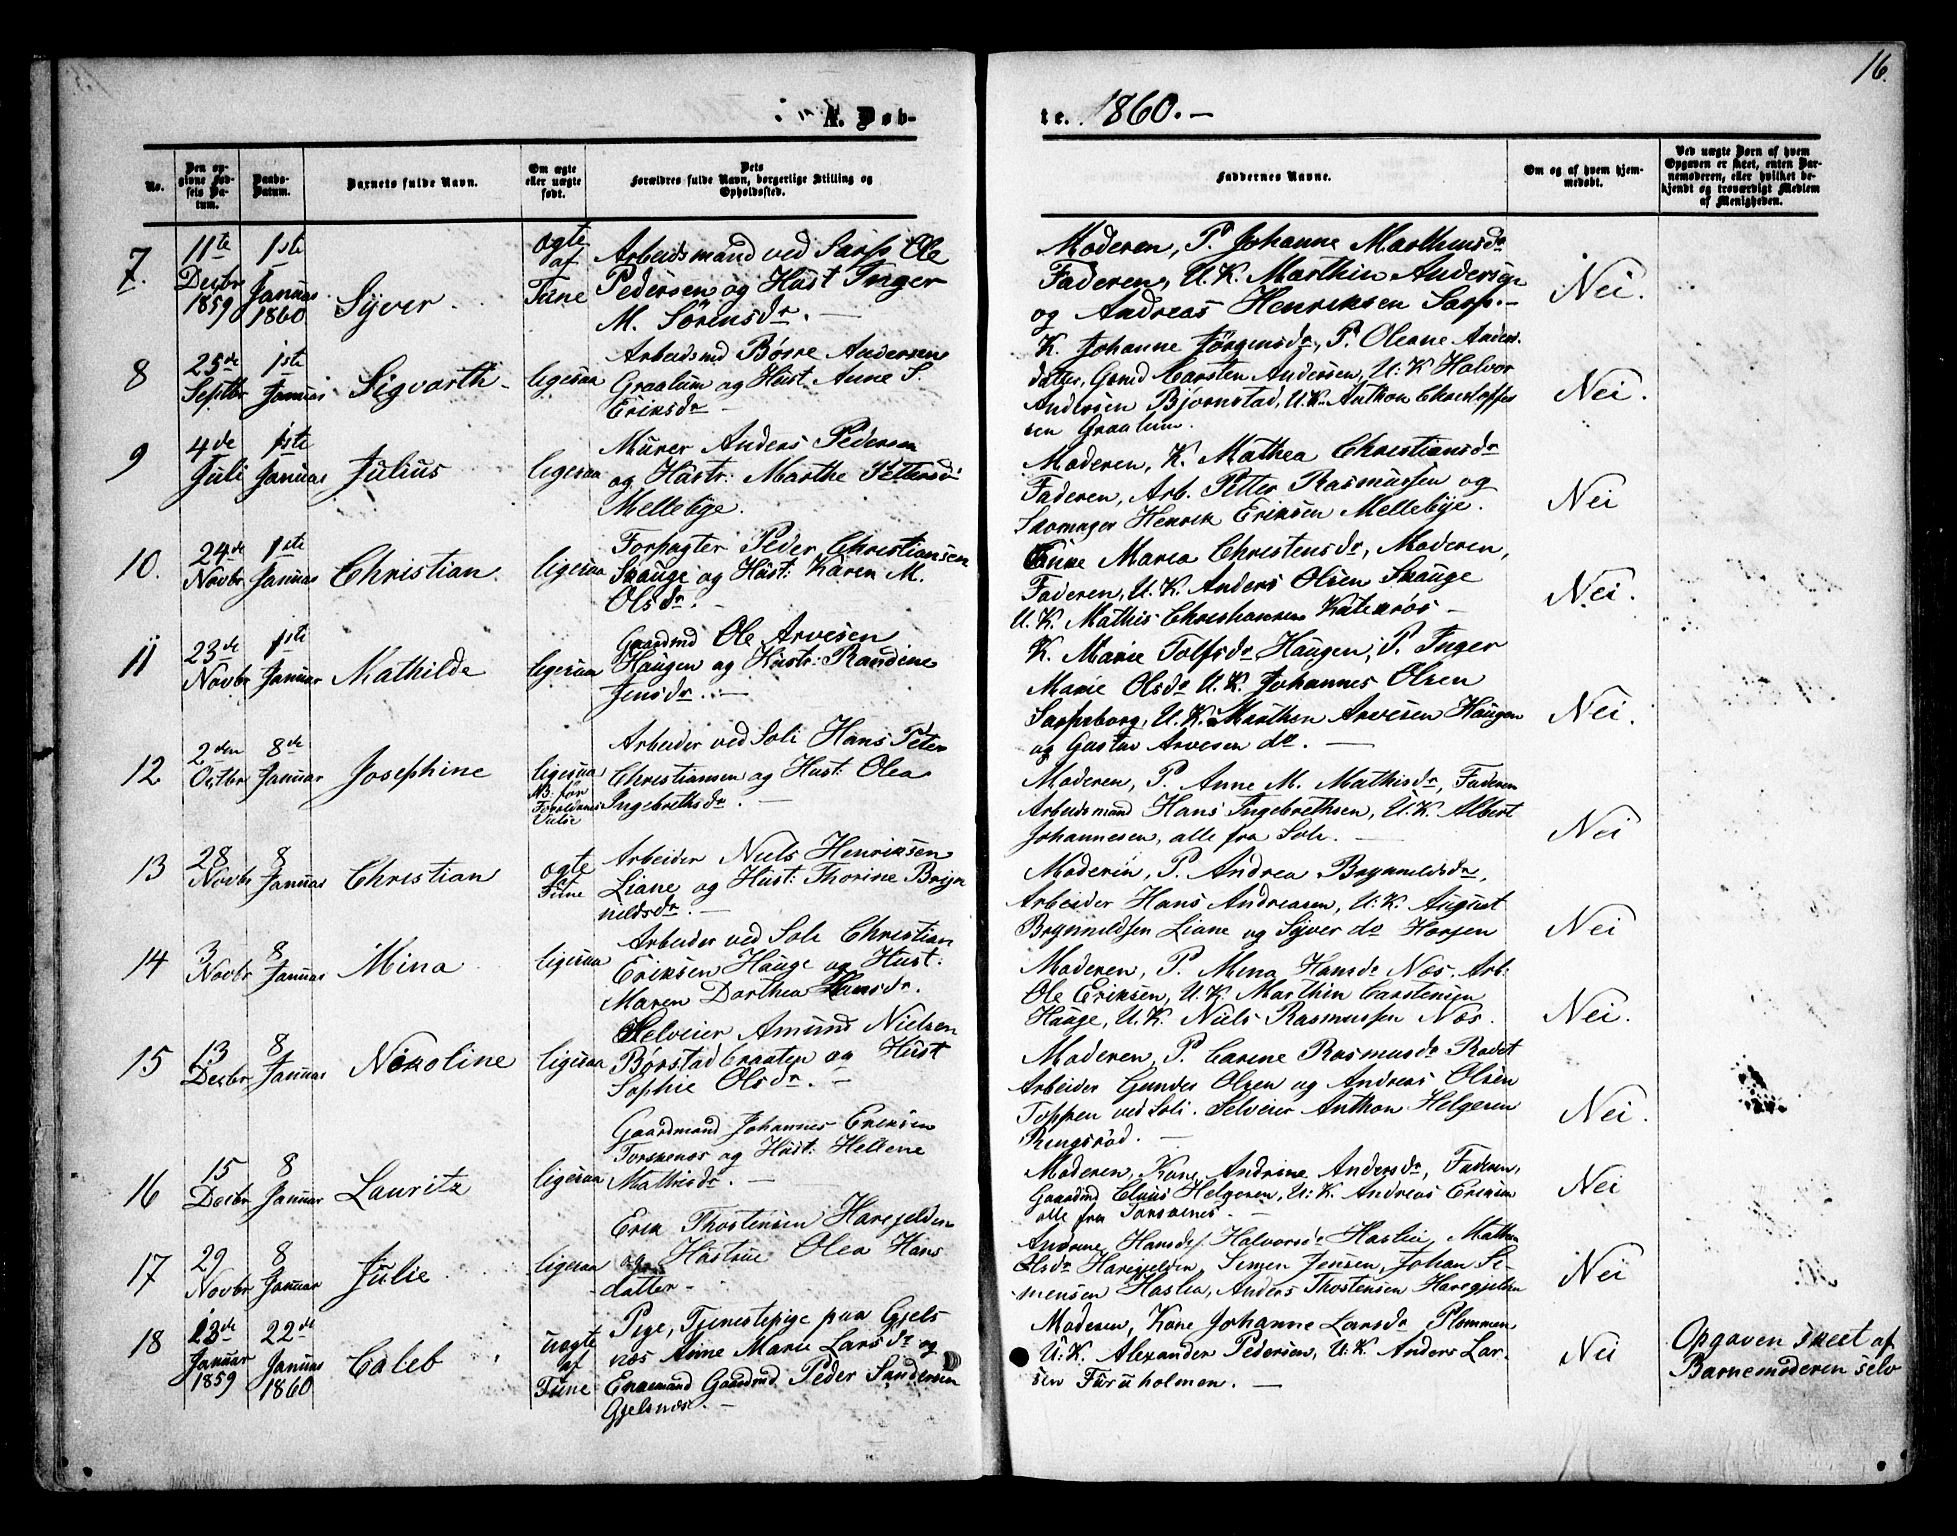 16.
A. Døb-
te. 1860. -
No.
Den op-
givne Fød-
sels Da-
tum.
Daabs-
Datum.
Barnets fulde Navn.
Om ægte
eller uægte
født.
Dets
Forældres fulde Navn, borgerlige Stilling og
Opholdssted.
Faddernes Navne.
Om og af hvem hjem-
medøbt.
Ved uægte Børn af hvem
Opgaven er skeet, enten Bar-
nemoderen, eller hvilket be-
kjendt og troværdigt Medlem
af Menigheden.
7.
11te
Decbr
1859
1ste
Januar
1860
Syver
ægte
af
Tune
Arbeidsmand ved Sarp Ole
Pedersen og Hust Inger
M. Sörensdr. -
Moderen, P. Johanne Marthinsdr
Faderen, U. K. Marthin Andersen
og Andreas Henriksen Sarp. -
Nei.
8
25de
Septbr
1ste
Januar
Sigvarth
ligesaa
Arbeidsmd Börre Andersen
Graalum og Hust. Anne S.
Eriksdr -
K. Johanne Jörgensdr, P. Oleane Anders
datter, Grmd Carsten Andersen, U. K. Halvor
Andersen Bjørnstad, U. K. Anthon Christoffer
sen Graalum.
Nei.
9
4de
Juli
1ste
Januar
Julius
ligesaa
Murer Anders Pedersen
og Hustr: Marthe Pettersdr
Mellebye.
Moderen, K. Mathea Christiansdr
Faderen, Arb. Petter Rasmussen og
Skomager Henrik Eriksen Mellebye.
Nei
10.
24de
Novbr
1ste
Januar
Christian.
ligesaa
Forpagter Peder Christiansen
Skauge og Hust: Karen M.
Olsdr. -
Enke Maria Christensdr, Moderen,
Faderen, U. K. Anders Olsen Skauge
U. K. Mathis Christiansen -
Nei.
11
23de
Novbr
1ste
Januar
Mathilde
ligesaa
Gaardmd Ole Arvesen
Haugen og Hustr: Randine
Jensdr. -
K. Marie Tolfsdr Haugen, P. Inger
Marie Olsdr U. K. Johannes Olsen
Sarpsborg, U. K. Marthin Arvesen Haugen
og Gustav Arvesen do. -
Nei.
12
2den
Octbr
8de
Januar
Josephine
ligesaa
NB: før
Forældrenes
Vielse
Arbeider ved Soli Hans Peter
Christiansen og Hust: Olea
Ingebrethsdr. -
Moderen, P. Anne M. Mathisdr, Faderen
Arbeidsmand Hans Ingebrethsen, U. K. Albert
Johannesen, alle fra Soli. -
Nei
13
28
Novbr
8
Januar
Christian
ægte
af
Tune
Arbeider Niels Henriksen
Liane og Hust: Thorine Bryn
nildsdr. -
Moderen, P. Andrea Brynnildsdr,
Arbeider Hans Andreasen, U. K. August
Brynnildsen Liane og Syver do
Nei
14
3
Novbr
8
Januar
Mina
ligesaa
Arbeider ved Soli Christian
Eriksen Hauge og Hust:
Maren Dorthea Hansdr.
Moderen, P. Mina Hansdr Næs. Arb:
Ole Eriksen, U. K. Marthin Carstensen
Hauge, U. K. Niels Rasmussen Næs.
Nei.
15
13
Decbr
8
Januar
Nikoline
ligesaa
Selveier Amund Nielsen
Børstad Braaten og Hust
Sophie Olsdr. -
Moderen, P. Carine Rasmusdr Rødet
Arbeider Gunder Olsen og Andreas Olsen
Toppen ved Soli. Selveier Anthon Helgesen
Ringsrød. -
Nei.
16
15
Decbr
8
Januar
Lauritz
ligesaa
Gaardmand Johannes Eriksen
Torskenæs og Hust: Hellene
Mathisdr. -
Moderen, Kone Andrine Andersdr, Faderen,
Gaardmd Claus Helgesen, U. K. Andreas Eriksen
alle fra Torskenes. -
Nei
17
29
Novbr
8
Januar
Julie
ligesaa
Erik Thostensen Haregjelden
og Hustrue Olea Hans
datter -
Andrine Halvorsdr Haslie, Mathea
Olsdr Haregjelden, Simen Jensen, Johan Si-
mensen Haslia, Anders Thostensen Haregjelden
Nei
18
23de
Januar
1859
22de
Januar
1860
Caleb
uægte
af
Tune
Pige, Tjenestepige paa Gjels
næs Anne Marie Larsdr og
Enkemand Gaardmd Peder Sandersen
Gjelsnæs. -
Moderen, Kone Johanne Larsdr Plommen
U. K. Alexander Pedersen, U. K. Anders Lar-
sen Furuholmen. -
Nei
Opgaven skeet af
Barnemoderen selv